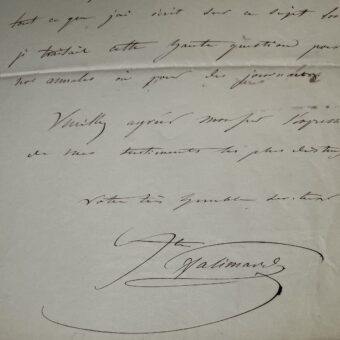 tout ce que j'ai écrit sur ce sujet
je traitais cette haute question pour
nos annales ou pour des journaux
Veuillez agréer monsieur l'express
de mes sentiments les plus disting
Votre très humble serviteur
Galimard